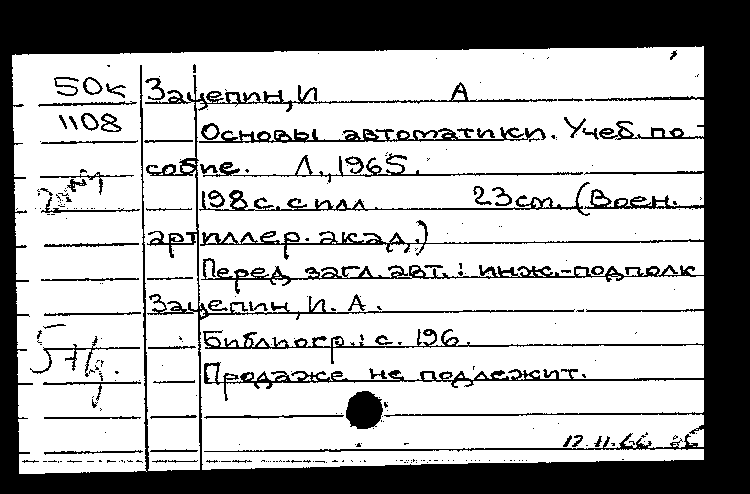 50к Зацепин, И А
1108 Основы автоматики. Учеб. по-
собие. Л., 1965.
198 с. с илл. 23 см. (Воен.
артиллер. акад.)
Перед загл. авт.: инж.-подполк
Зацепин, И. А.
Библиогр.: с. 196.
Продаже не подлежит.
12.11.66